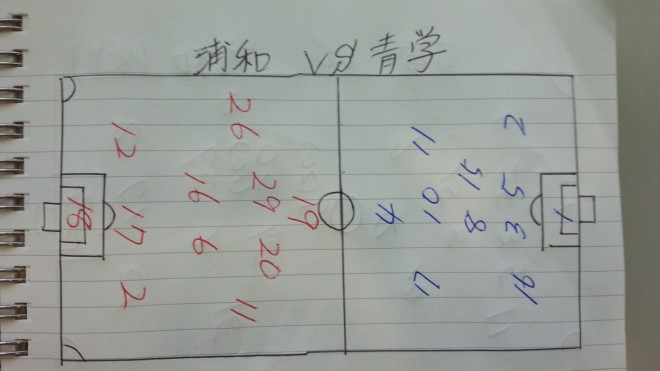 浦和 VS 青学
18
12 17 2
16 6
26 29 20 11
19
4
11 10
15 8
2 5 3 16
1